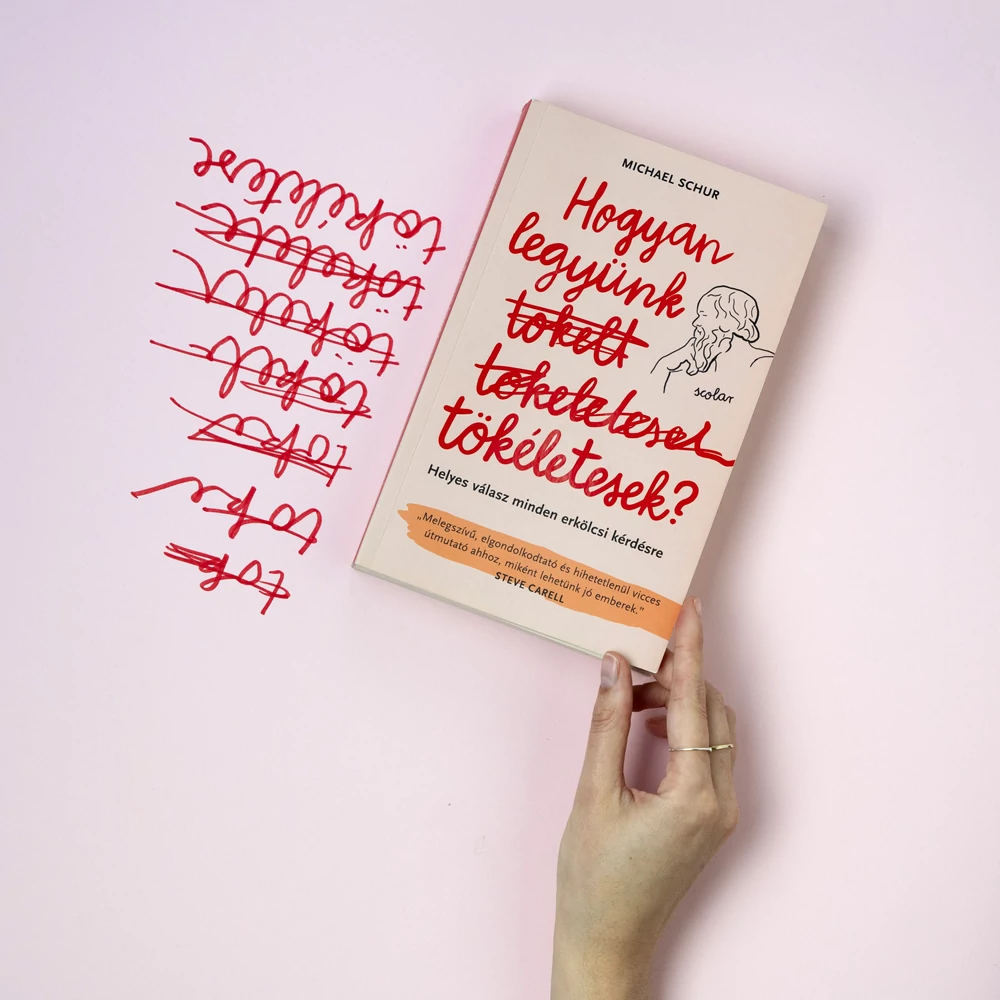 MICHAEL SCHUR
Hogyan
legyünk
tokelt
tokeletesek
tökéletesek?
scolar
Helyes válasz minden erkölcsi kérdésre
„Melegszívű, elgondolkodtató és hihetetlenül vicces
útmutató ahhoz, miként lehetünk jó emberek.”
STEVE CARELL
tok
toke
toke
tökel
tökelete
tökéletese